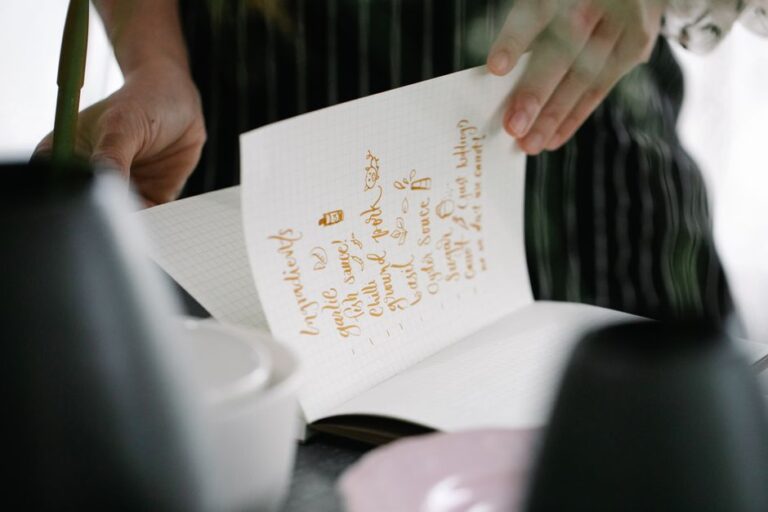 Ingredients
- garlic
- fish sauce!
- chilli
- ground pork
- basil
- Oyster Sauce
- Sugar
- carrot (just kidding
no we don't use carrot!